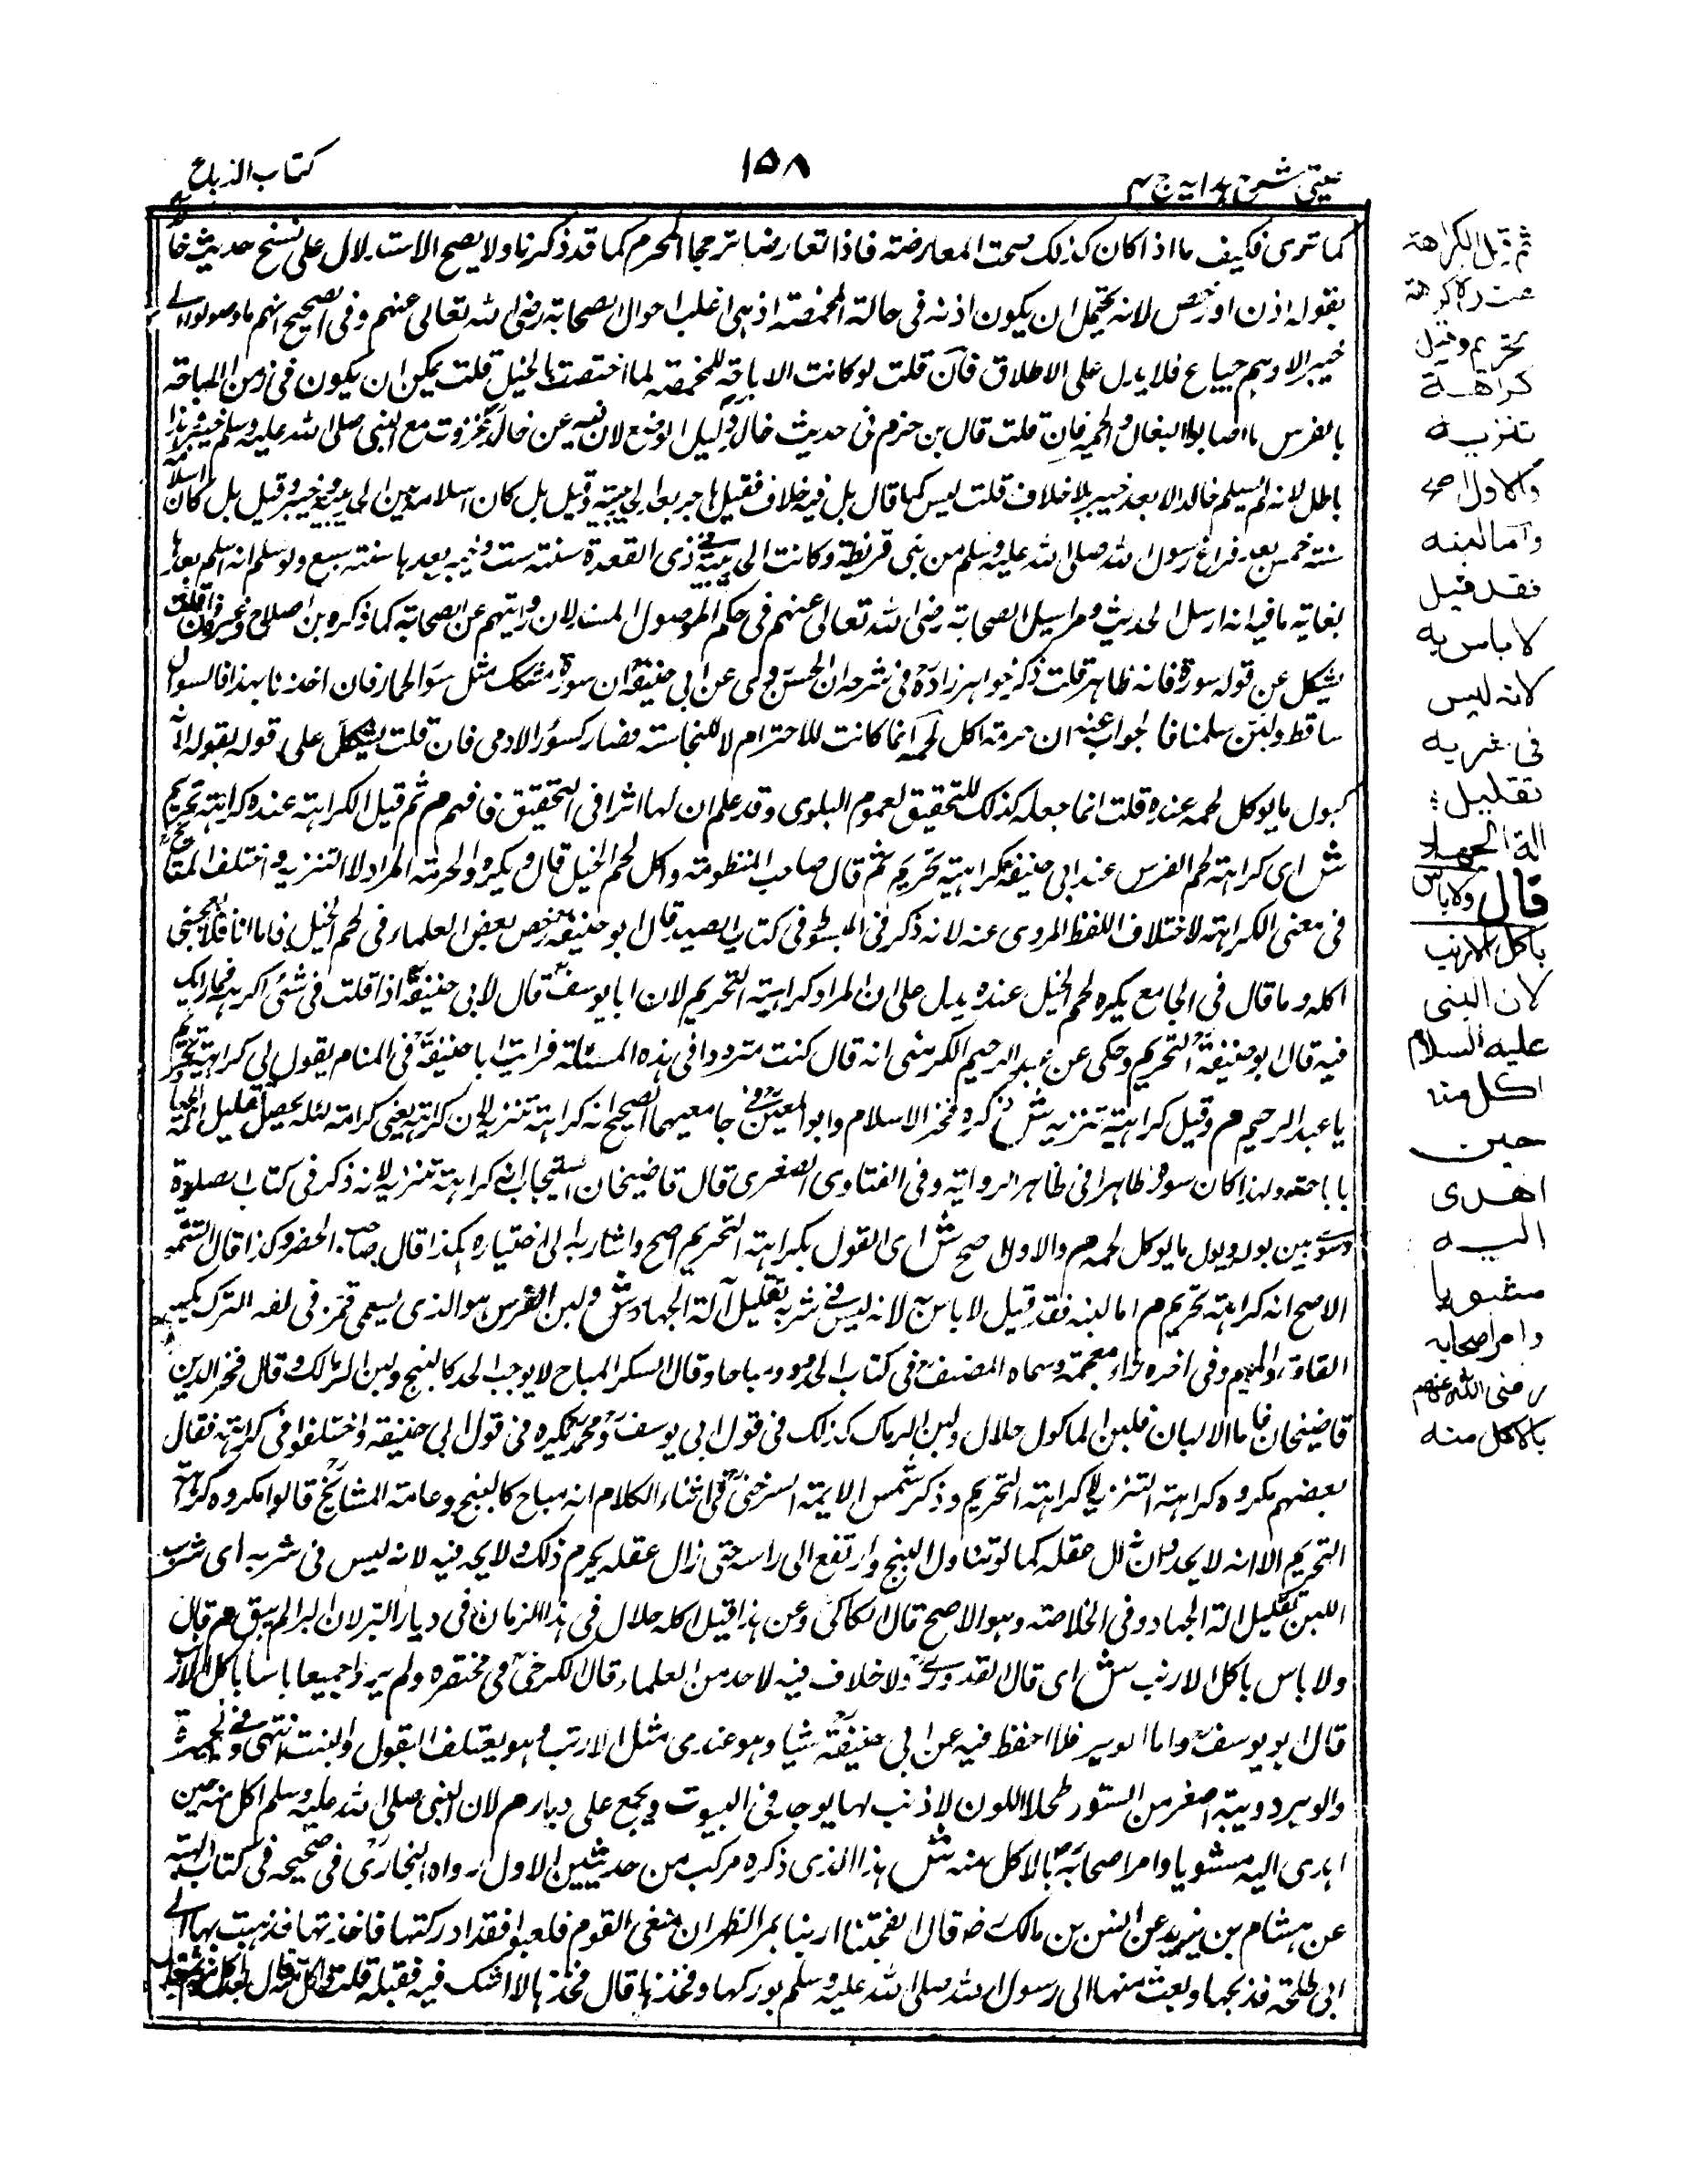 عینی شرح ہدایہ ج ۴
۱۵۸
کتاب الذبائح
کما تری فکیف ما اذا کان کذلک صحت المعارضة فاذا تعارضا ترجح المحرم کما قد ذکرنا ولا یصح الاستدلال علی نسخ حدیث خالد
بقوله اذن او رخص لانه یحتمل ان یکون اذنه فی حالة المخمصة اذ هی اغلب احوال الصحابة رضی الله تعالی عنهم وفی الصحیح انهم ما وصلوا الی
خیبر الا وهم جیاع فلا یدل علی الاطلاق فان قلت لو کانت الاباحة للمخمصة لما اختصت بالخیل قلت یمکن ان یکون فی زمن الاباحة
بالفرس ما اصابوا البغال والحمیر فان قلت قال بن حزم فی حدیث خالد دلیل الوضع لان فیه عن خالد غزوت مع النبی صلی الله علیه وسلم خیبر وهذا
باطل لانه لم یسلم خالد الا بعد خیبر بلا خلاف قلت لیس کما قال بل فیه خلاف فقیل هاجر بعد الحدیبیة وقیل بل کان اسلامه بین الحدیبیة وخیبر وقیل بل کان اسلامه
سنة خمس بعد فراغ رسول الله صلی الله علیه وسلم من بنی قریظة وکانت الحدیبیة فی ذی القعدة سنة ست وخیبر بعدها سنة سبع ولو سلم انه اسلم بعدها
فغایة ما فیه انه ارسل الحدیث ومراسیل الصحابة رضی الله تعالی عنهم فی حکم الموصول المسند لان روایتهم عن الصحابة کما ذکره بن الصلاح وغیره فان قلت
یشکل عن قوله سورة فانه ظاهر قلت ذکر خواهر زاده فی شرحه ان الحسن روی عن ابی حنیفة ان سوره مشکک مثل سور الحمار فان اخذنا بهذا فالسوال
ساقط ولئن سلمنا فالجواب عنه ان حرمة اکل لحمه انما کانت للاحترام لا للنجاسة فصار کسور الادمی فان قلت یشکل علی قوله بقوله انه
کبول ما یوکل لحمه عنده قلت انما جعله کذلک للتحقیق لعموم البلوی وقد علم ان لها اثرا فی التحقیق فافهم م ثم قیل الکراهة عنده کراهة تحریم
ش ای کراهة لحم الفرس عند ابی حنیفة کراهیة تحریم ثم قال صاحب المنظومة واکل لحم الخیل قال ویکره والحرمة المراد لا التنزیه واختلف المشایخ
فی معنی الکراهة لاختلاف اللفظ المروی عنه لانه ذکر فی المبسوط فی کتاب الصید قال ابو حنیفة رخص بعض العلماء فی لحم الخیل فاما انا فلا یعجبنی
اکله وما قال فی الجامع یکره لحم الخیل عنده یدل علی ان المراد کراهیة التحریم لان ابا یوسف قال لابی حنیفة اذا قلت فی شئ اکرهه فما رایک
فیه قال ابو حنیفة التحریم وحکی عن عبد الرحیم الکرمینی انه قال کنت مترددا فی هذه المسئلة فرایت ابا حنیفة فی المنام یقول لی کراهة تحریم
یا عبد الرحیم م وقیل کراهیة تنزیه ش ذکره فخر الاسلام وابو المعین فی جامعیهما الصحیح انه کراهة تنزیه لان کراهته لمعنی کرامته لئلا یحصل تقلیل الة الجهاد
باباحته ولهذا کان سوره طاهرا فی ظاهر الروایة وفی الفتاوی الصغری قال قاضیخان اسبیجابی انه کراهة تنزیه لانه ذکر فی کتاب الصلوة
وسوی بین بوله وبول ما یوکل لحمه م والاول اصح ش ای القول بکراهة التحریم اصح واشار به الی اختیاره هکذا قال صاحب الحصر وکذا قال التتمة
الاصح انه کراهة تحریم م اما لبنه فقد قیل لا باس به لانه لیس فی شربه تقلیل آلة الجهاد ش ولبن الفرس هو الذی یسمی قمز فی لغة الترک بکسر
القاف والمیم وفی اخره زاء معجمة وسماه المصنف فی کتاب الحدود مباحا وقال السکر المباح لا یوجب الحد کالبنج ولبن الرماک وقال فخر الدین
قاضیخان فاما الالبان فلبن الماکول حلال ولبن الرماک کذلک فی قول ابی یوسف ومحمد ویکره فی قول ابی حنیفة واختلفوا فی کراهته فقال
بعضهم مکروه کراهة التنزیه لا کراهة التحریم وذکر شمس الایمة السرخسی فی اثناء الکلام انه مباح کالبنج وعامة المشایخ قالوا مکروه کراهة
التحریم الا انه لا یحد وان زال عقله کما لو تناول البنج وارتفع الی راسه حتی زال عقله یحرم ذلک ولا یحد فیه لانه لیس فی شربه ای شرب
اللبن تقلیل الة الجهاد وفی الخلاصة وهو الاصح قال الکاکی وعن هذا قیل اکله حلال فی هذا الزمان فی دیار التتر لان البر لم یبق م قال
ولا باس باکل الارنب ش ای قال القدوری ولا خلاف فیه لاحد من العلماء قال الکرخی فی مختصره ولم یروا جمیعا باسا باکل الارنب
قال ابو یوسف واما الوبر فلا احفظ فیه عن ابی حنیفة شیا وهو عندی مثل الارنب وهو یعتلف البقول والنبت انتهی وفی الجمهرة
والوبر دویبة اصغر من السنور طحلاء اللون لا ذنب لها یوجد فی البیوت ویجمع علی وبار م لان النبی صلی الله علیه وسلم اکل منه حین
اهدی الیه مشویا وامر اصحابه بالاکل منه ش هذا الذی ذکره مرکب من حدیثین الاول رواه البخاری فی صحیحه فی کتاب الهبة
عن هشام بن یزید عن انس بن مالک رضه قال انفجتنا ارنبا بمر الظهران فسعی القوم فلعبوا فقد ادرکتها فاخذتها فذهبت بها الی
ابی طلحة فذبحها وبعث منها الی رسول الله صلی الله علیه وسلم بورکها وفخذها قال فخذها لا اشک فیه فقبله قلت
ثم قیل الکراهة
عنده کراهة
تحریم وقیل
کراهة
تنزیه
والاول اصح
واما لبنه
فقد قیل
لا باس به
لانه لیس
فی شربه
تقلیل
الة الجهاد
قال ولا باس
باکل الارنب
لان النبی
علیه السلام
اکل منه
حین
اهدی
الیه
مشویا
وامر اصحابه
رضی الله عنهم
بالاکل منه